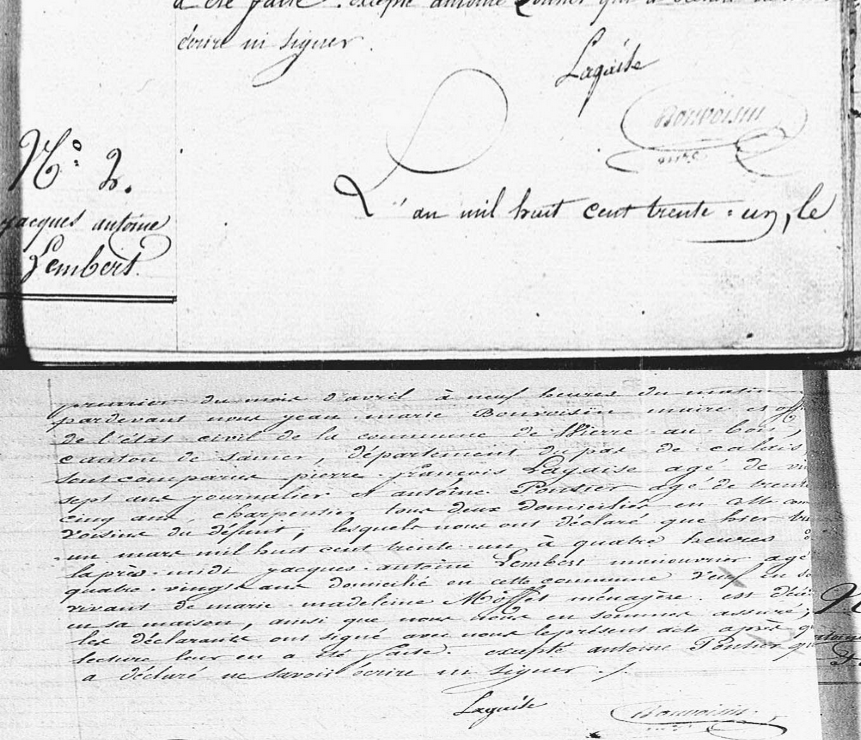 a été faite. excepté antoine
écrire ni signer.
Lagaise
Bonvoisin
maire
N.° 2.
jacques antoine
Lembert.
L'an mil huit cent trente-un, le
premier du mois d'avril à neuf heures du matin
pardevant nous jean marie Bonvoisin maire et off
de l'état civil de la commune de St Pierre au bois,
canton de samer, département du pas-de calais
sont comparus pierre françois Lagaise agé de
sept ans journalier et antoine Pontier agé de trente
cinq ans, charpentier tous deux domiciliés en cette com
voisins du défunt, lesquels nous ont déclaré que hier
un mars mil huit cent trente-un à quatre heures
l'après-midi jacques antoine Lembert manouvrier agé
quatre-vingts ans domicilié en cette commune en so
vivant de marie madeleine ménagère est
en sa maison, ainsi que nous nous en sommes assuré,
les déclarants ont signé avec nous le présent acte après q
lecture leur en a été faite. excepté antoine Pontier qui
a déclaré ne savoir écrire ni signer./.
Lagaise
Bonvoisin